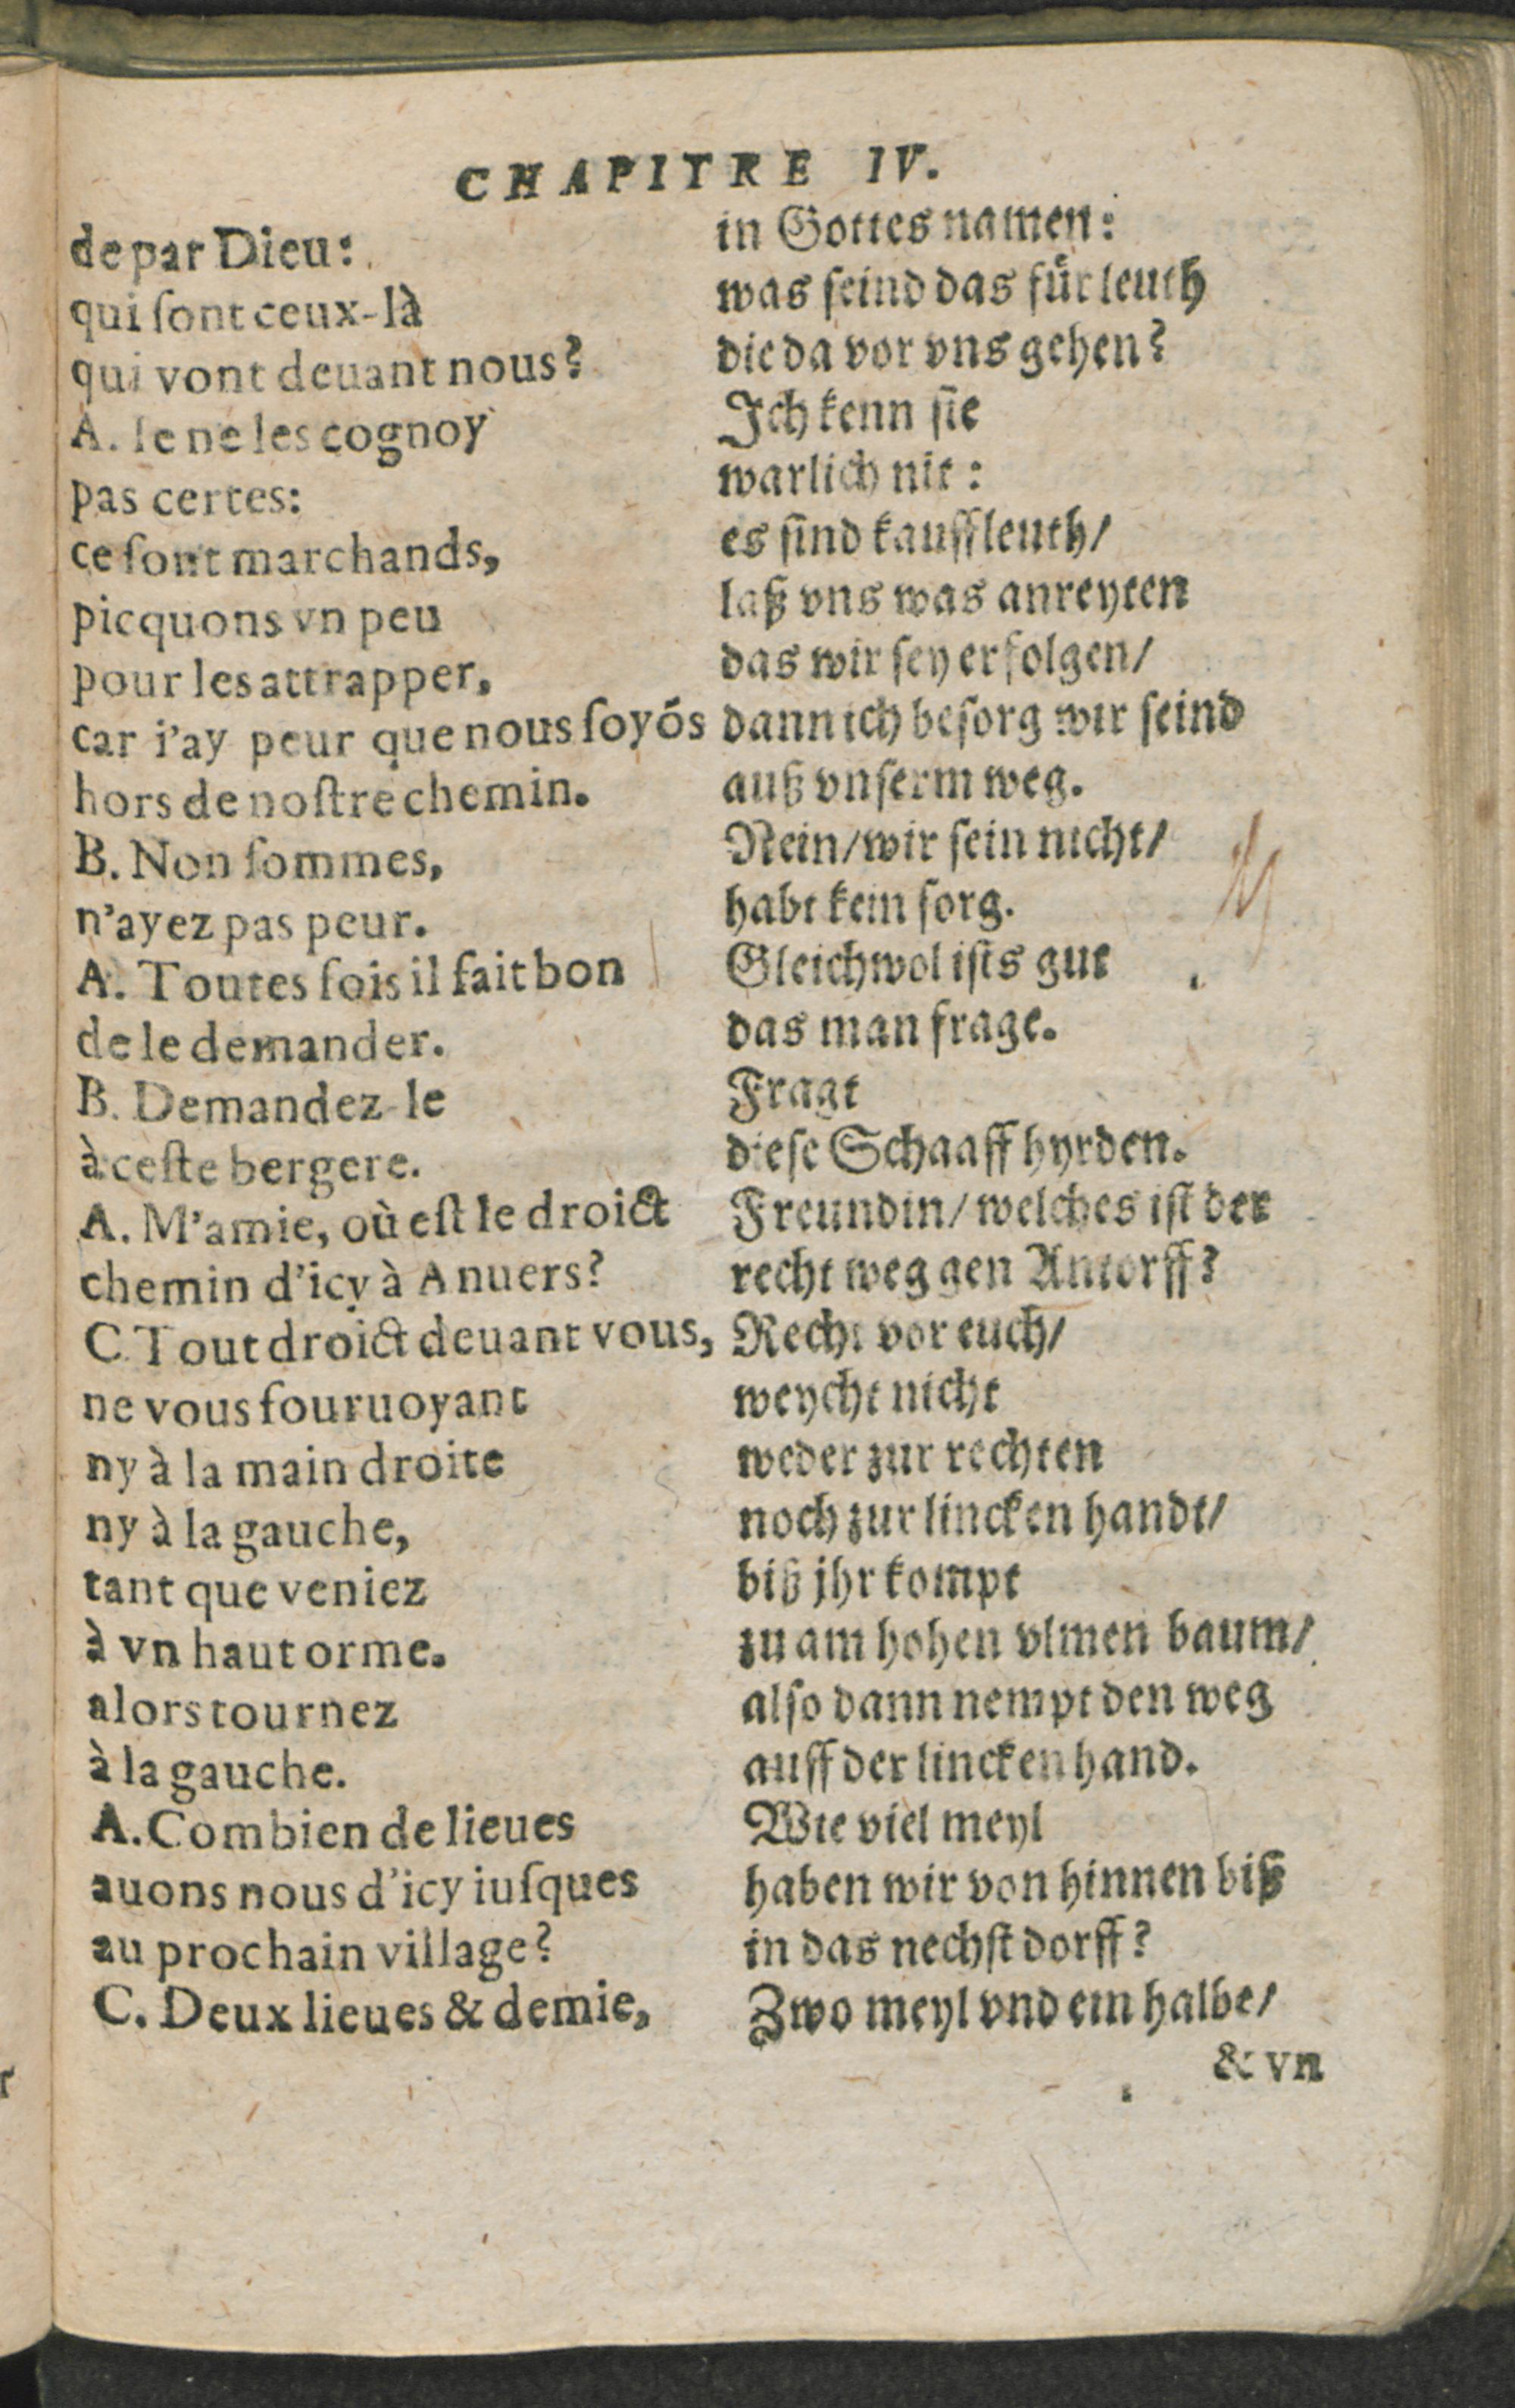 CHAPITRE IV.
de par Dieu:
qui ſont ceux-là
qui vont deuant nous?
A. Ie ne les cognoy
pas certes:
ce ſont marchands,
picquons vn peu
pour les attrapper,
car i'ay peur que nous ſoyõs
hors de noſtre chemin.
B. Non ſommes,
n'ayez pas peur.
A. Toutes fois il fait bon
de le demander.
B. Demandez-le
à ceſte bergere.
A. M'amie, où eſt le droict
chemin d'icy à Anuers?
C Tout droict deuant vous,
ne vous fouruoyant
ny à la main droite
ny à la gauche,
tant que veniez
à vn haut orme.
alors tournez
à la gauche.
A. Combien de lieues
auons nous d'icy iuſques
au prochain village?
C. Deux lieues & demie,
in Gottes namen:
was ſeind das fuͤr leuth
die da vor vns gehen?
Ich kenn ſie
warlich nit:
es ſind kauffleuth/
laß vns was anreyten
das wir ſey erfolgen/
dann ich beſorg wir ſeind
auß vnſerm weg.
Nein/wir ſein nicht/
habt kein ſorg.
Gleichwol iſts gut
das man frage.
Fragt
dieſe Schaaff hyrden.
Freundin/ welches iſt der
recht weg gen Antorff?
Recht vor euch/
weycht nicht
weder zur rechten
noch zur lincken handt/
biß jhr kompt
zu am hohen vlmen baum/
alſo dann nempt den weg
auff der lincken hand.
Wie viel meyl
haben wir von hinnen biß
in das nechſt dorff?
Zwo meyl vnd ein halbe/
& vn